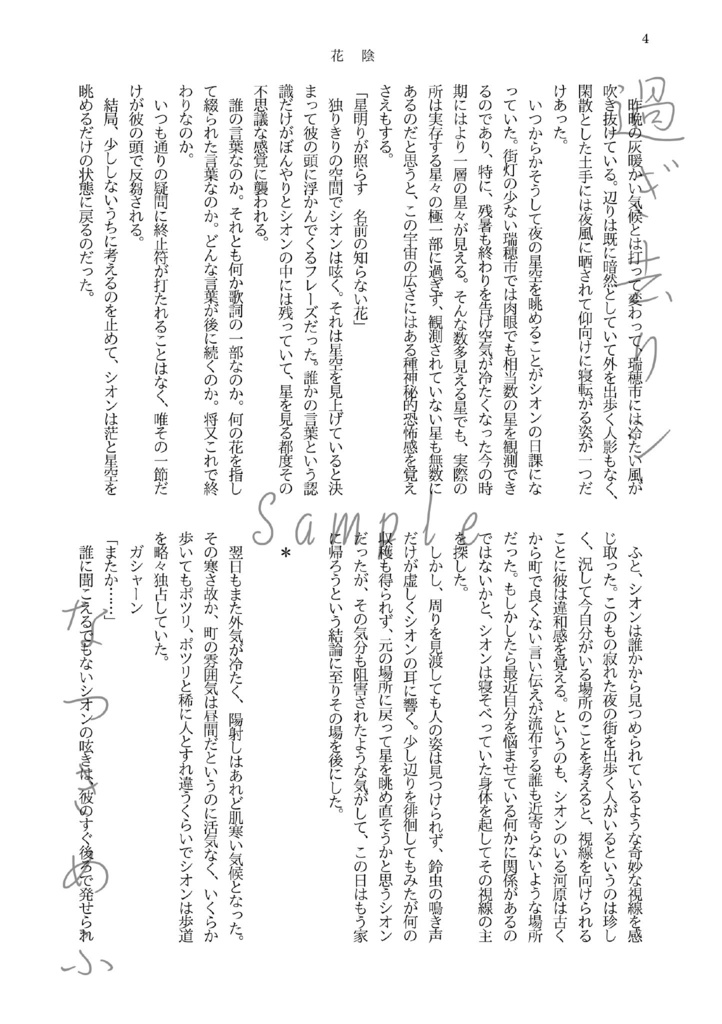 4
花　陰
昨晩の灰暖かい気候とは打って変わって、瑞穂市には冷たい風が
吹き抜けている。辺りは既に暗然としていて外を出歩く人影もなく、
閑散とした土手には夜風に晒されて仰向けに寝転がる姿が一つだ
けあった。
いつからかそうして夜の星空を眺めることがシオンの日課にな
っていた。街灯の少ない瑞穂市では肉眼でも相当数の星を観測でき
るのであり、特に、残暑も終わりを告げ空気が冷たくなった今の時
期にはより一層の星々が見える。そんな数多見える星でも、実際の
所は実存する星々の極一部に過ぎず、観測されていない星も無数に
あるのだと思うと、この宇宙の広さにはある種神秘的恐怖感を覚え
さえもする。
「星明りが照らす　名前の知らない花」
独りきりの空間でシオンは呟く。それは星空を見上げていると決
まって彼の頭に浮かんでくるフレーズだった。誰かの言葉という認
識だけがぼんやりとシオンの中には残っていて、星を見る都度その
不思議な感覚に襲われる。
誰の言葉なのか。それとも何か歌詞の一部なのか。何の花を指し
て綴られた言葉なのか。どんな言葉が後に続くのか。将又これで終
わりなのか。
いつも通りの疑問に終止符が打たれることはなく、唯その一節だ
けが彼の頭で反芻される。
結局、少ししないうちに考えるのを止めて、シオンは茫と星空を
眺めるだけの状態に戻るのだった。
ふと、シオンは誰かから見つめられているような奇妙な視線を感
じ取った。このもの寂れた夜の街を出歩く人がいるというのは珍し
く、況して今自分がいる場所のことを考えると、視線を向けられる
ことに彼は違和感を覚える。というのも、シオンのいる河原は古く
から町で良くない言い伝えが流布する誰も近寄らないような場所
だった。もしかしたら最近自分を悩ませている何かに関係があるの
ではないかと、シオンは寝そべっていた身体を起してその視線の主
を探した。
しかし、周りを見渡しても人の姿は見つけられず、鈴虫の鳴き声
だけが虚しくシオンの耳に響く。少し辺りを徘徊してもみたが何の
収穫も得られず、元の場所に戻って星を眺め直そうかと思うシオン
だったが、その気分も阻害されたような気がして、この日はもう家
に帰ろうという結論に至りその場を後にした。
＊
翌日もまた外気が冷たく、陽射しはあれど肌寒い気候となった。
その寒さ故か、町の雰囲気は昼間だというのに活気なく、いくらか
歩いてもポツリ、ポツリと稀に人とすれ違うくらいでシオンは歩道
を略々独占していた。
ガシャーン
「またか……」
誰に聞こえるでもないシオンの呟きは、彼のすぐ後ろで発せられ
過ぎ去りし
Sample
なつきめぶ